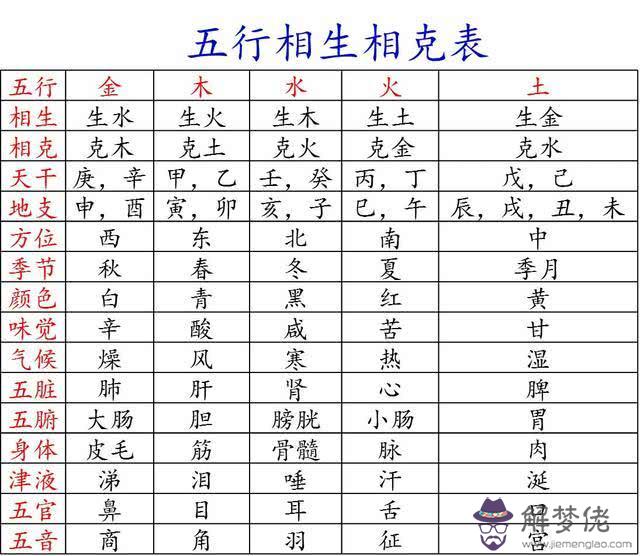 五行相生相克表
五行 金 木 水 火 土
相生 生水 生火 生木 生土 生金
相克 克木 克土 克火 克金 克水
天干 庚，辛 甲，乙 壬，癸 丙，丁 戊，己
地支 申，酉 寅，卯 亥，子 巳，午 辰，戌，丑，未
方位 西 东 北 南 中
季节 秋 春 冬 夏 季月
颜色 白 青 黑 红 黄
味觉 辛 酸 咸 苦 甘
气候 燥 风 寒 热 湿
五脏 肺 肝 肾 心 脾
五腑 大肠 胆 膀胱 小肠 胃
身体 皮毛 筋 骨髓 脉 肉
津液 涕 泪 唾 汗 涎
五官 鼻 目 耳 舌 口
五音 商 角 羽 征 宫
解梦佬
www.jiemenglao.com